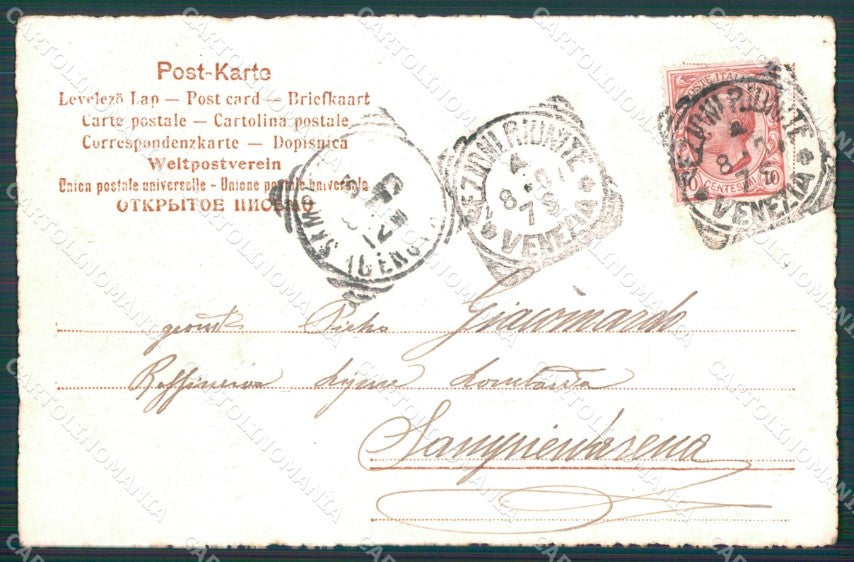 Post-Karte
Levelező Lap — Post card — Briefkaart
Carte postale — Cartolina postale
Correspondenzkarte — Dopisnica
Weltpostverein
Union postale universelle - Unione postale universale
ОТКРЫТОЕ ПИСЬМО
POSTE ITAL
10 CENTES 10
SEZIONI RIUNITE
4
8
7 S
VENEZIA
SEZIONI RIUNITE
4
8
7 S
VENEZIA
(GENOVA)
12
Giacomardo
Raffineria Lombarda
Sampierdarena
CARTOLINOMANIA